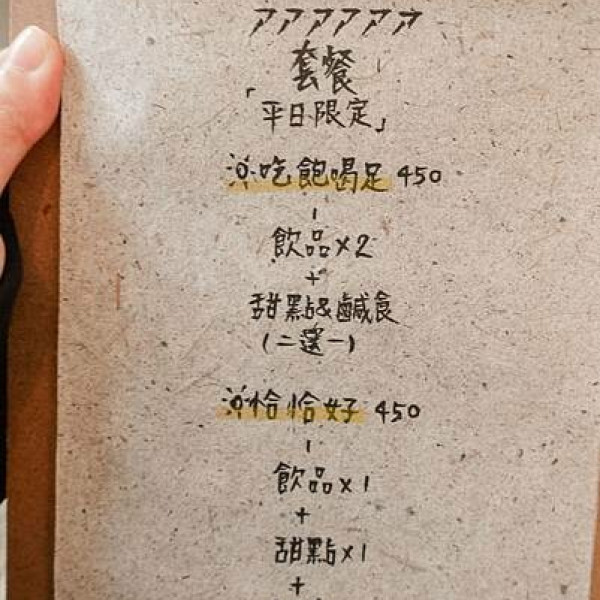 套餐
「平日限定」
吃飽喝足 450
飲品x2
+
甜點&鹹食
(二選一)
恰恰好 450
飲品x1
+
甜點x1
+